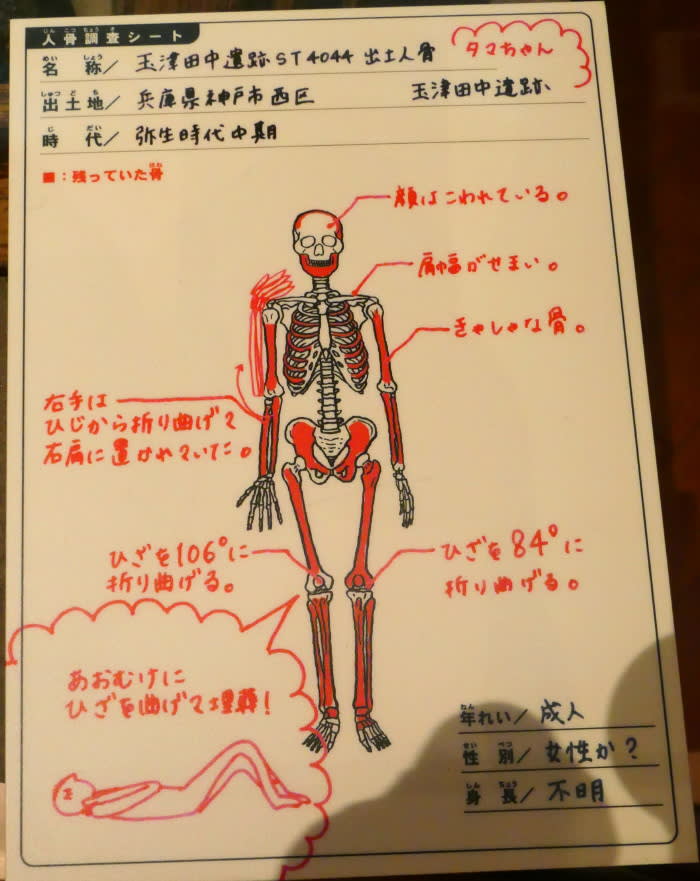 人骨調査シート
名称/ 玉津田中遺跡ST4044 出土人骨
タマちゃん
出土地/ 兵庫県神戸市西区 玉津田中遺跡
時代/ 弥生時代中期
■:残っていた骨
顔はこわれている。
肩幅がせまい。
きゃしゃな骨。
右手は
ひじから折り曲げて
右肩に置かれていた。
ひざを106°に
折り曲げる。
ひざを84°に
折り曲げる。
あおむけに
ひざを曲げて埋葬!
年れい/ 成人
性別/ 女性か?
身長/ 不明